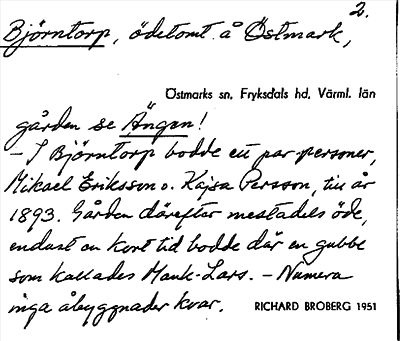 2.
Björntorp, ödetomt å Östmark,
Östmarks sn, Fryksdals hd, Värml. län
gården se Ängen!
– I Björntorp bodde ett par personer,
Mikael Eriksson o. Kajsa Persson, till år
1893. Gården därefter mestadels öde,
endast en kort tid bodde där en gubbe
som kallades Mank-Lars. – Numera
inga åbyggnader kvar. RICHARD BROBERG 1951